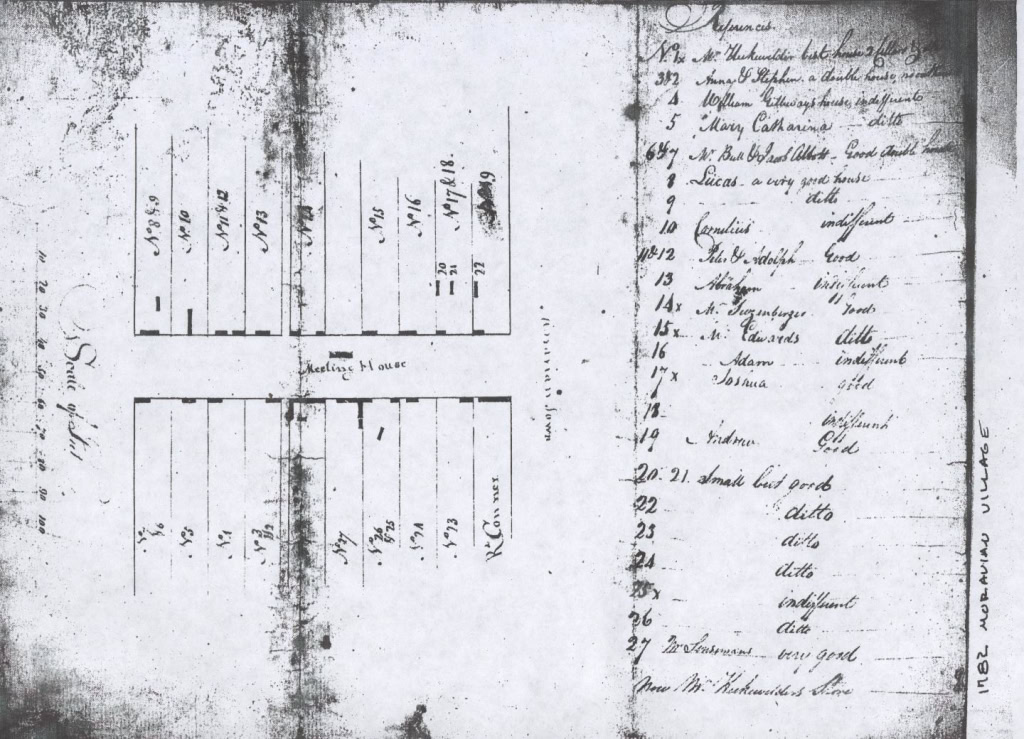 References
No. 1x Mr Heckewelder best house &
3&2 Anna & Stephen a double house
4 William
house indifferent
5 Mary Catharina ditto
6&7 Mr. Bull & Good double house
8 Lucas - a very good house
9 ditto
10 Cornelius indifferent
11&12 Peter & Adolph Good
13 Abraham indifferent
14x Mr. Good
15x Mr. Edwards ditto
16 Adam indifferent
17x Joshua good
18 indifferent
19 Andrew Good
20. 21. Small but good
22 ditto
23 ditto
24 ditto
25x indifferent
26 ditto
27 Mr very good
Now Mr. Heckewelders Store
No 10
No 11 & 12
No 13
No 15
No 16
No 17 & 18
20
21
22
Meeting House
No 5
No 4
No 27
No 26 & 25
No 24
No 23
Rd Conner
Town
Scale of feet
10 20 30 40 50 60 70 80 90 100
1782 MORAVIAN VILLAGE